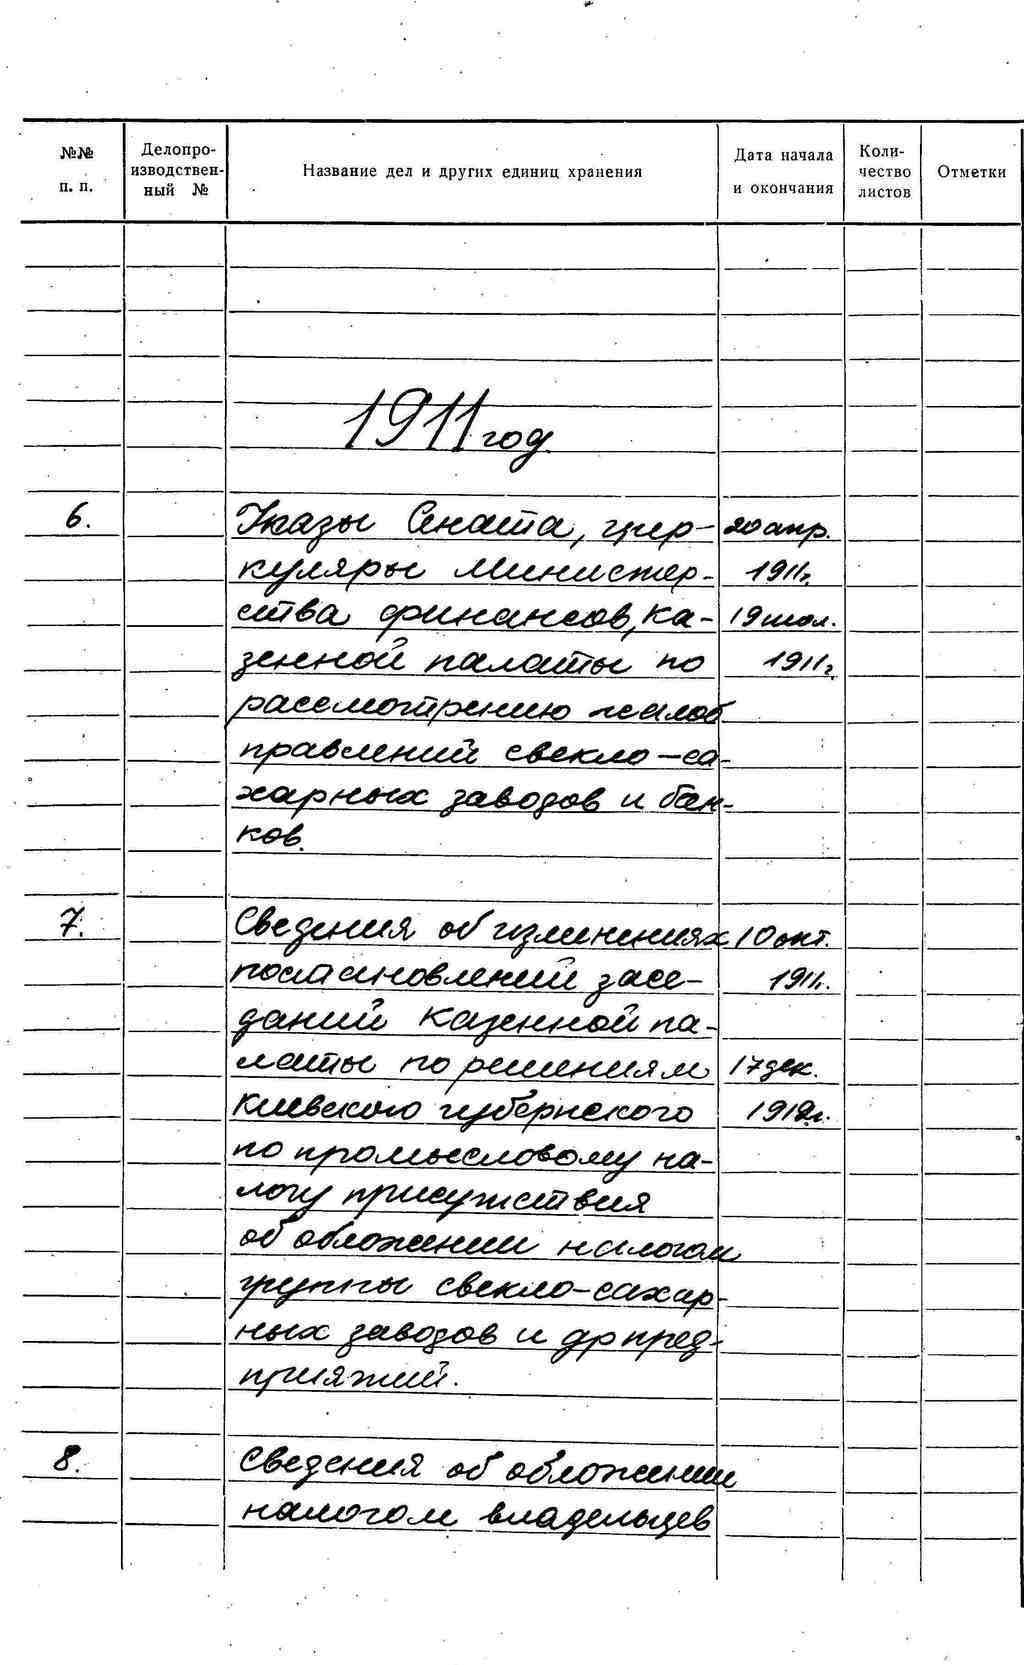 №№ п. п.
Делопро-
изводствен-
ный №
Название дел и других единиц хранения
Дата начала
и окончания
Коли-
чество
листов
Отметки
1911 год
6. Указы Сената, цир- 20 апр.
куляры Министер- 1911г.
ства финансов, ка- 19 июл.
зенной палаты по 1911г.
рассмотрению жалоб
правлений свекло-са-
харных заводов и бан-
ков.
7. Сведения об изменениях 10 окт.
постановлений засе- 1911г.
даний казенной па-
латы по решениям 17 дек.
Киевского губернского 1912г.
по промысловому на-
логу присутствия
об обложении налогом
группы свекло-сахар-
ных заводов и др пред-
приятий.
8. Сведения об обложении
налогом владельцев